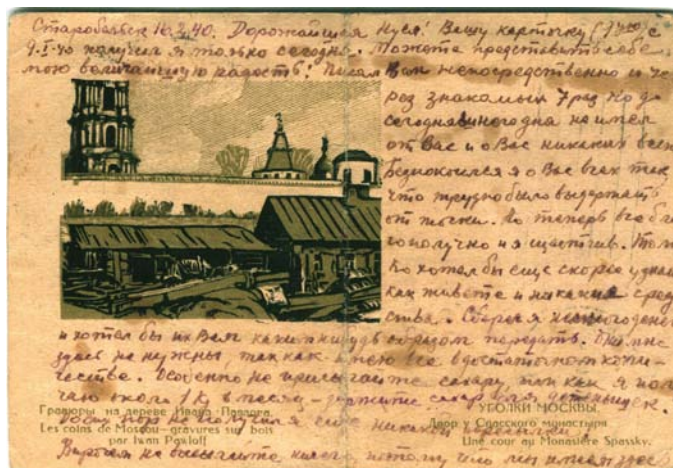 Старобельск 10.2.40. Дорожайшая Нуся! Вашу карточку с
9.I-40 получил я только сегодня. Можете представить себе
мою величайшую радость! Писал Вам непосредственно и че-
рез знакомых 7 раз но до
сегодняшнего дня не имел
от Вас и о Вас никаких
Безпокоился я о Вас всех так,
что трудно было выдержать
от тоски. Но теперь все бла
гополучно и я щастлив. Толь
ко хотел бы еще скорее узнать
как живете и на какие сред
ства. Сберег я немного денег
и хотел бы их Вам каким нибудь образом передать. Они мне
здесь не нужны, так как имею все в достаточном коли-
честве. Особенно не присылайте сахару, так как я полу
чаю около 1 kg в месяц - держите сахар для детенышек.
Гравюры на дереве Ивана Павлова.
Les coins de Moscou - gravures sur bois
par Iwan Pawloff
УГОЛКИ МОСКВЫ.
Двор у Спасского монастыря
Une cour au Monastère Spassky.
До сих пор не получил еще никакой посылки.
Впрочем не высылайте ничего потому что мы имеем здесь